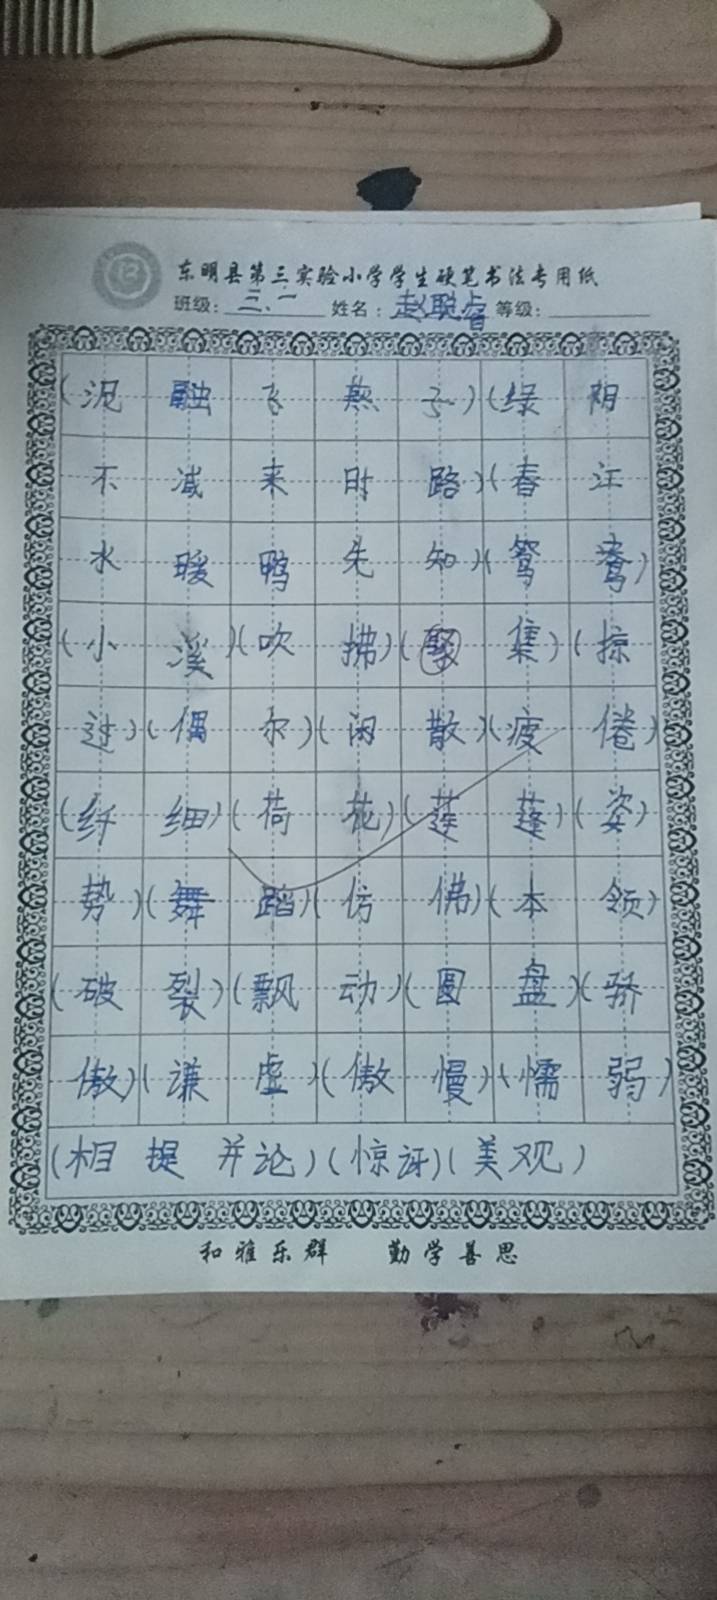 东明县第三实验小学学生硬笔书法专用纸
班级：三、一 姓名：赵聪睿 等级：
（泥融飞燕子）（绿阴
不减来时路）（春江
水暖鸭先知）（鸳鸯）
（小溪）（吹拂）（聚集）（掠
过）（偶尔）（闲散）（疲倦）
（纤细）（荷花）（莲蓬）（姿
势）（舞蹈）（仿佛）（本领）
（破裂）（飘动）（圆盘）（骄
傲）（谦虚）（傲慢）（懦弱）
（相提并论）（惊讶）（美观）
和雅乐群 勤学善思